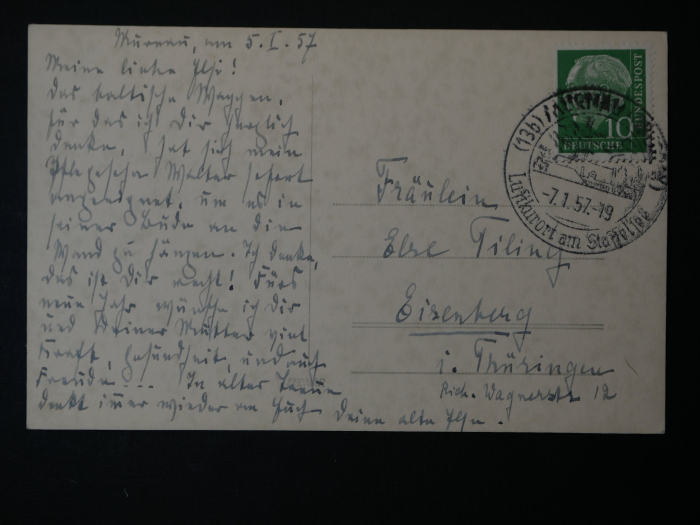 Murnau, am 5.I.57
Meine liebe Ilse!
Das baltische Wappen,
für das ich Dir herzlich
danke, hat sich mein
Pflegesohn Walter sofort
angeeignet, um es in
seiner Bude an die
Wand zu hängen. Ich denke,
das ist Dir recht! Fürs
neue Jahr wünsche ich Dir
und Deiner Mutter viel
Kraft, Gesundheit, und auch
Freude.... In alter Treue
denkt immer wieder an Euch
Deine alte Ilse.
Fräulein
Else Tiling
Eisenberg
i. Thüringen
Rich. Wagnerstr. 12
10
DEUTSCHE
BUNDESPOST
(13b) MURNAU
-7.1.57.-19
Luftkurort am Staffelsee